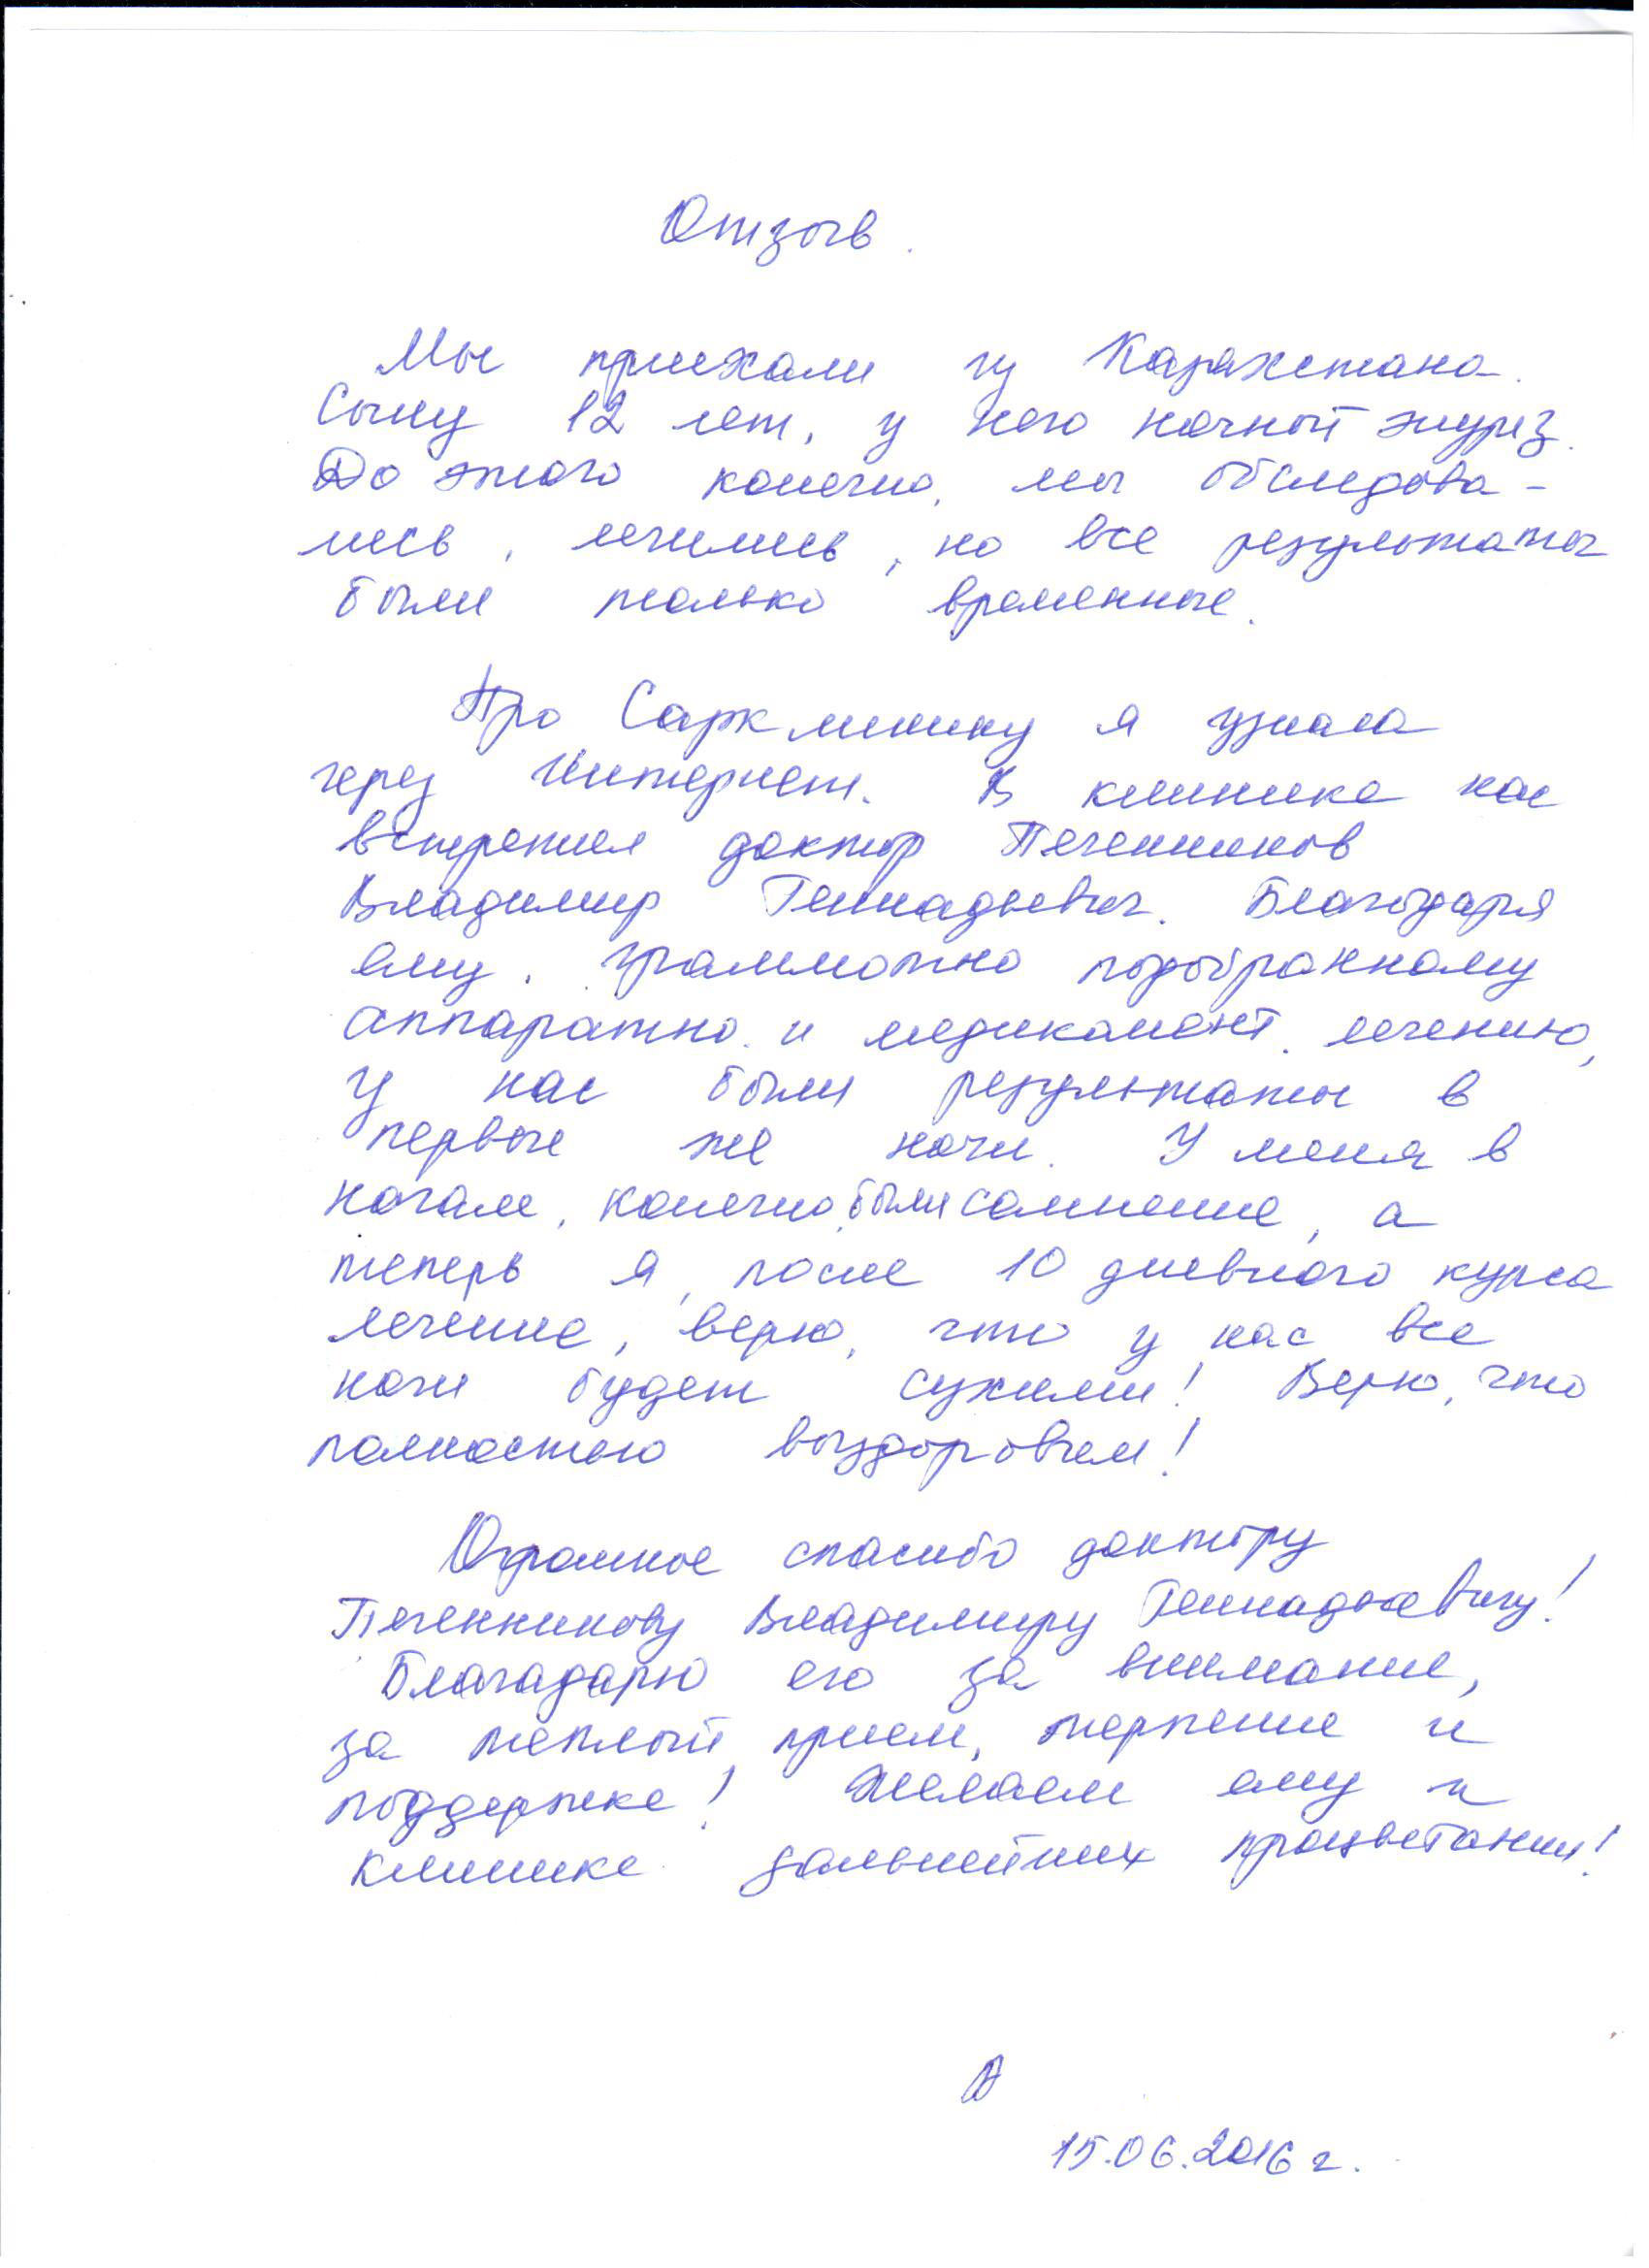 Отзыв.
Мы приехали из Казахстана.
Сыну 12 лет, у него ночной энурез.
До этого конечно, мы обследова-
лись, лечились, но все результаты
были только временные.
Про Сарклинику я узнала
через Интернет. В клинике нас
встретил доктор Печенников
Владимир Геннадьевич. Благодаря
ему, граммотно подобранному
аппаратно. и медикамент. лечению,
у нас были результаты в
первые же ночи. У меня в
начале, конечно, были сомнение, а
теперь я, после 10 дневного курса
лечение, верю, что у нас все
ночи будет сухими! Верю, что
полностью выздоровеем!
Огромное спасибо доктору
Печенникову Владимиру Геннадьевичу!
Благадарю его за внимание,
за теплый прием, терпение и
поддержке! Желаем ему и
клинике дальнейших процветании!
15.06.2016 г.